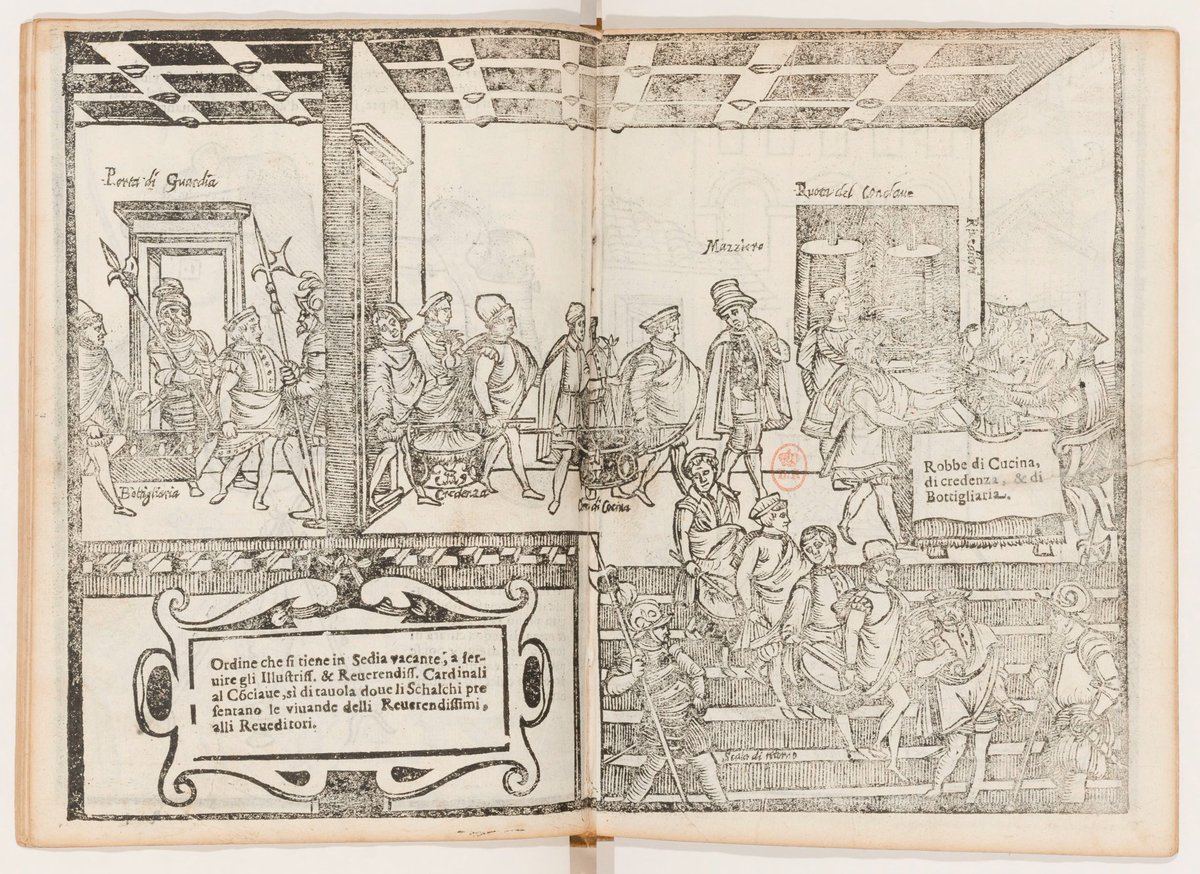 Porta di Guardia
Ruota del Conclave
Mazziero
Reueditori
Bottigliaria
Credenza
di Cucina
Robbe di Cucina,
di credenza, & di
Bottigliaria.
Ordine che si tiene in Sedia vacante, a ser-
uire gli Illustriss. & Reuerendiss. Cardinali
al Cōciaue, si di tauola doue li Schalchi pre
sentano le viuande delli Reuerendissimi,
alli Reueditori.
di ritorno